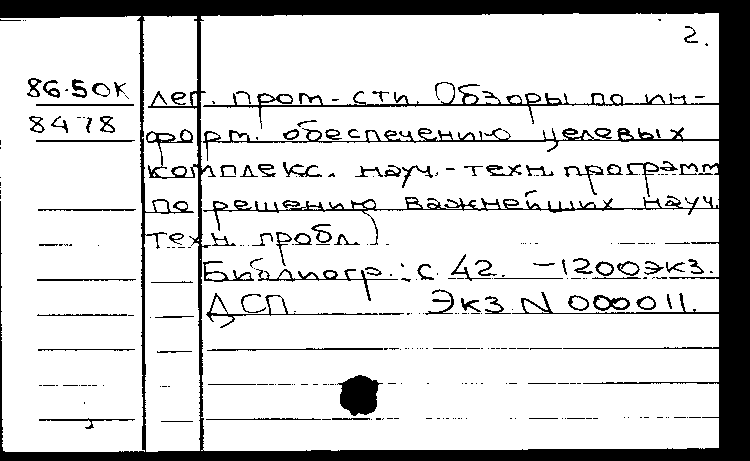 2.
86-50К лег. пром-сти. Обзоры по ин-
8478 форм. обеспечению целевых
комплекс. науч.-техн. программ
по решению важнейших науч.
техн. пробл.)
Библиогр.: с 42. -1200экз.
ДСП. Экз N 000011.